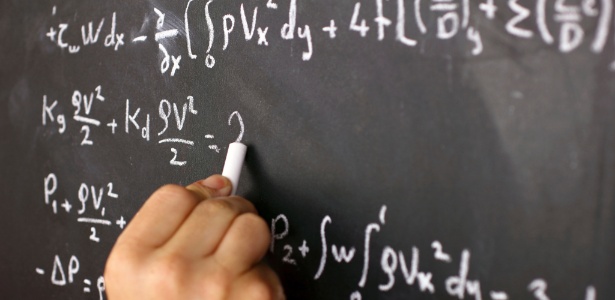 +τ_w W dx - ∂/∂x (∫₀ ρV_x² dy + 4f[(—/D)_y + Σ(—/D)
K_g ρV²/2 + K_d ρV²/2 = ?
P₁ + ρV₁²/2 + P₂ + ∫w∫ρV_x² dy =
-ΔP = ρ